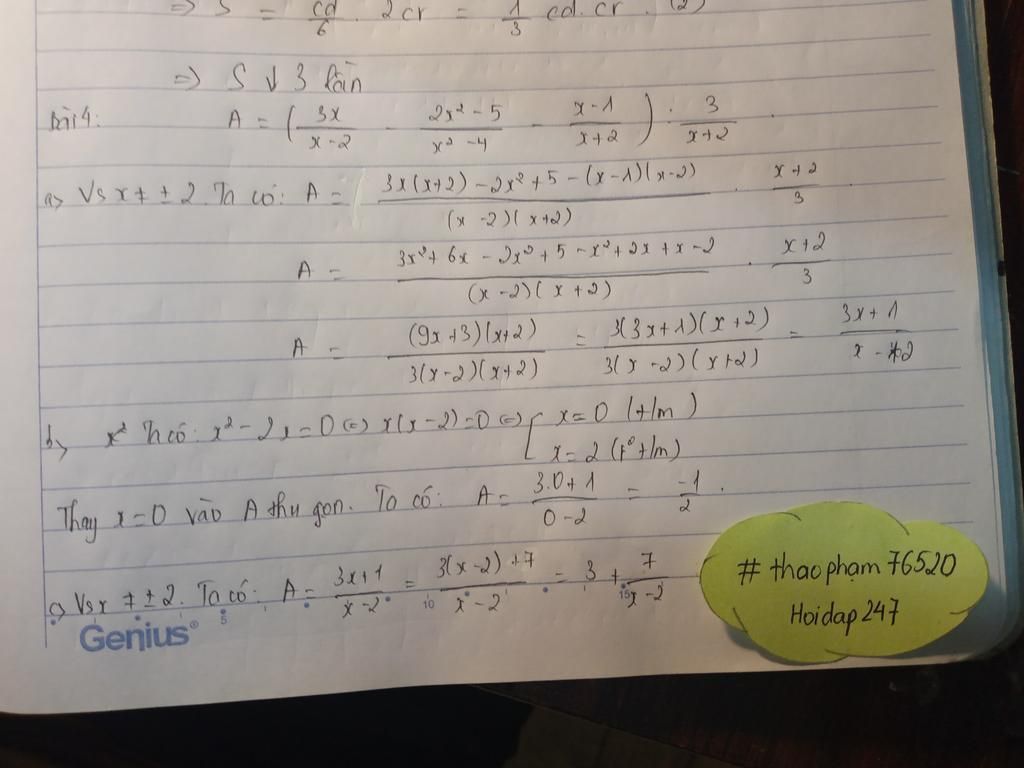 => S = cd/6 . 2cr = 1/3 cd.cr . (2)
=> S ↓ 3 lần
Bài 4: A = (3x/(x-2) - (2x²-5)/(x²-4) - (x-1)/(x+2)) : 3/(x+2) .
a> Vs x ≠ ± 2. Ta có: A = (3x(x+2) - 2x² + 5 - (x-1)(x-2))/((x-2)(x+2)) . (x+2)/3
A = (3x² + 6x - 2x² + 5 - x² + 2x + x - 2)/((x-2)(x+2)) . (x+2)/3
A = ((9x+3)(x+2))/(3(x-2)(x+2)) = (3(3x+1)(x+2))/(3(x-2)(x+2)) = (3x+1)/(x-2)
b> x² Ta có: x² - 2x = 0 <=> x(x-2) = 0 <=> [ x = 0 (t/m)
x = 2 (k° t/m)
Thay x=0 vào A thu gọn. Ta có: A = (3.0+1)/(0-2) = -1/2 .
c> Vs x ≠ ± 2. Ta có: A = (3x+1)/(x-2) = (3(x-2)+7)/(x-2) = 3 + 7/(x-2)
5 10 15
Genius®
# thaophạm76520
Hoidap247